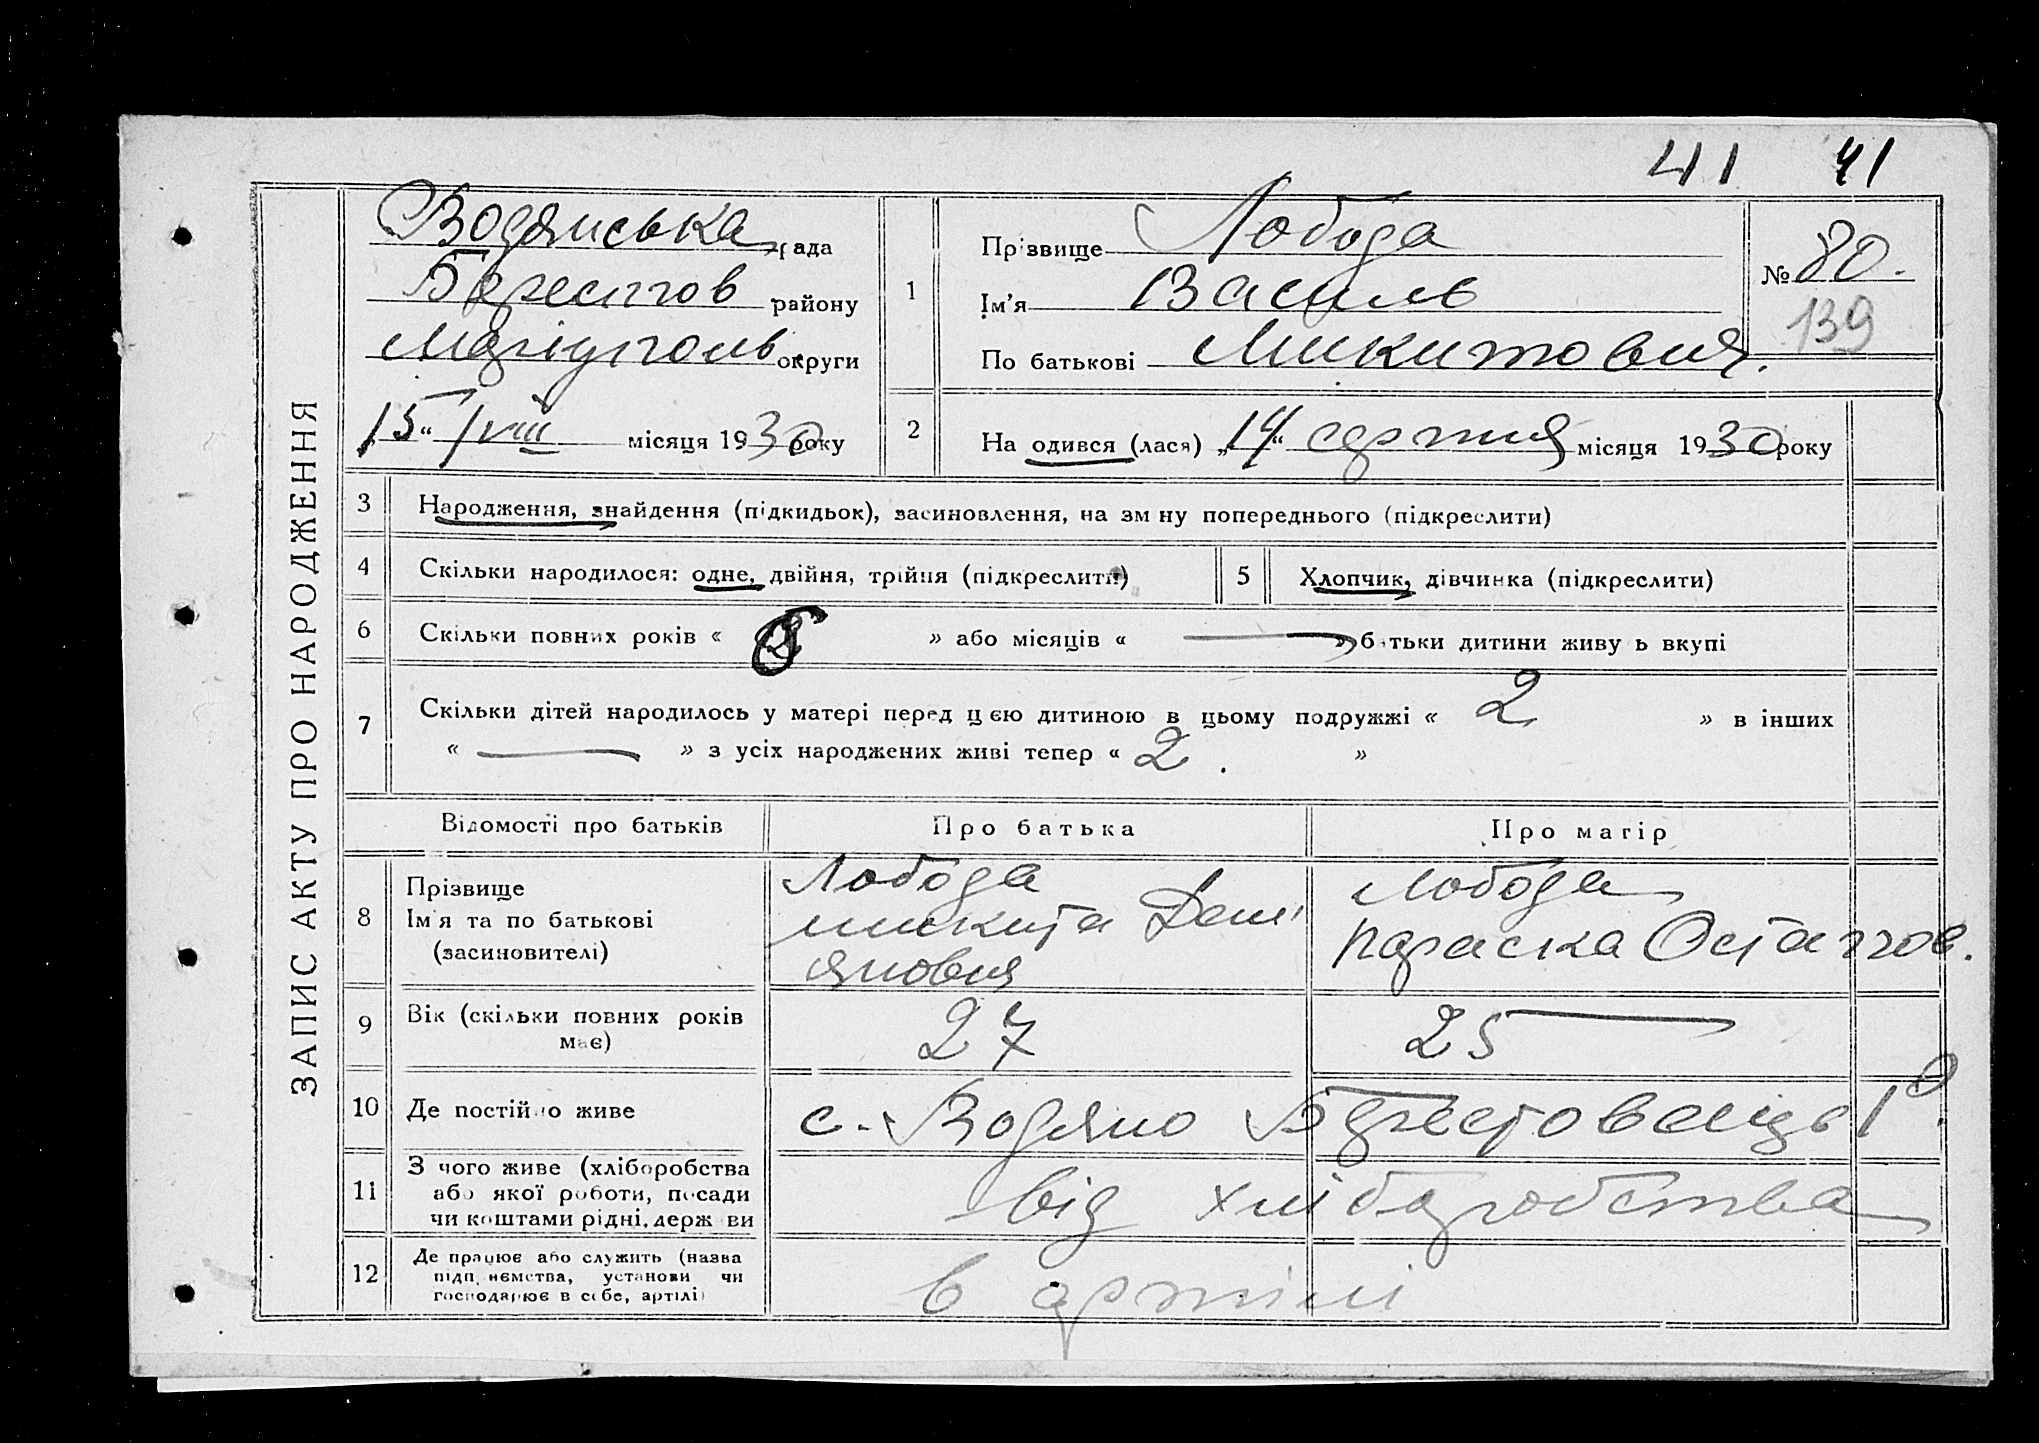 41 41
ЗАПИС АКТУ ПРО НАРОДЖЕННЯ
Водянська рада
Берестов району
Маріупол округи
„15“ /VIII місяця 1930 року
1
Прізвище Лобода
Ім'я Василь
По батькові Микитович.
№ 80.
139
2
На одився (лася) „14“ серпня місяця 1930 року
3 Народження, знайдення (підкидьок), засиновлення, на зм ну попереднього (підкреслити)
4 Скільки народилося: одне, двійня, трійня (підкреслити)
5 Хлопчик, дівчинка (підкреслити)
6 Скільки повних років « » або місяців « — » батьки дитини живу ь вкупі
7 Скільки дітей народилось у матері перед цією дитиною в цьому подружжі « 2 » в інших
« — » з усіх народжених живі тепер « 2. »
Відомості про батьків Про батька Про матір
8
Прізвище
Ім'я та по батькові
(засиновителі)
Лобода
Микита Дем'
янович
Лобода
Параска Остапов.
9
Вік (скільки повних років
має)
27
25
10 Де постійно живе
с. Водяно Берестов
11
З чого живе (хліборобства
або якої роботи, посади
чи коштами рідні, держ ви
від хліборобства
12
Де працює або служить (назва
підп иємства, установи чи
господарює в себе, артілі)
в артілі